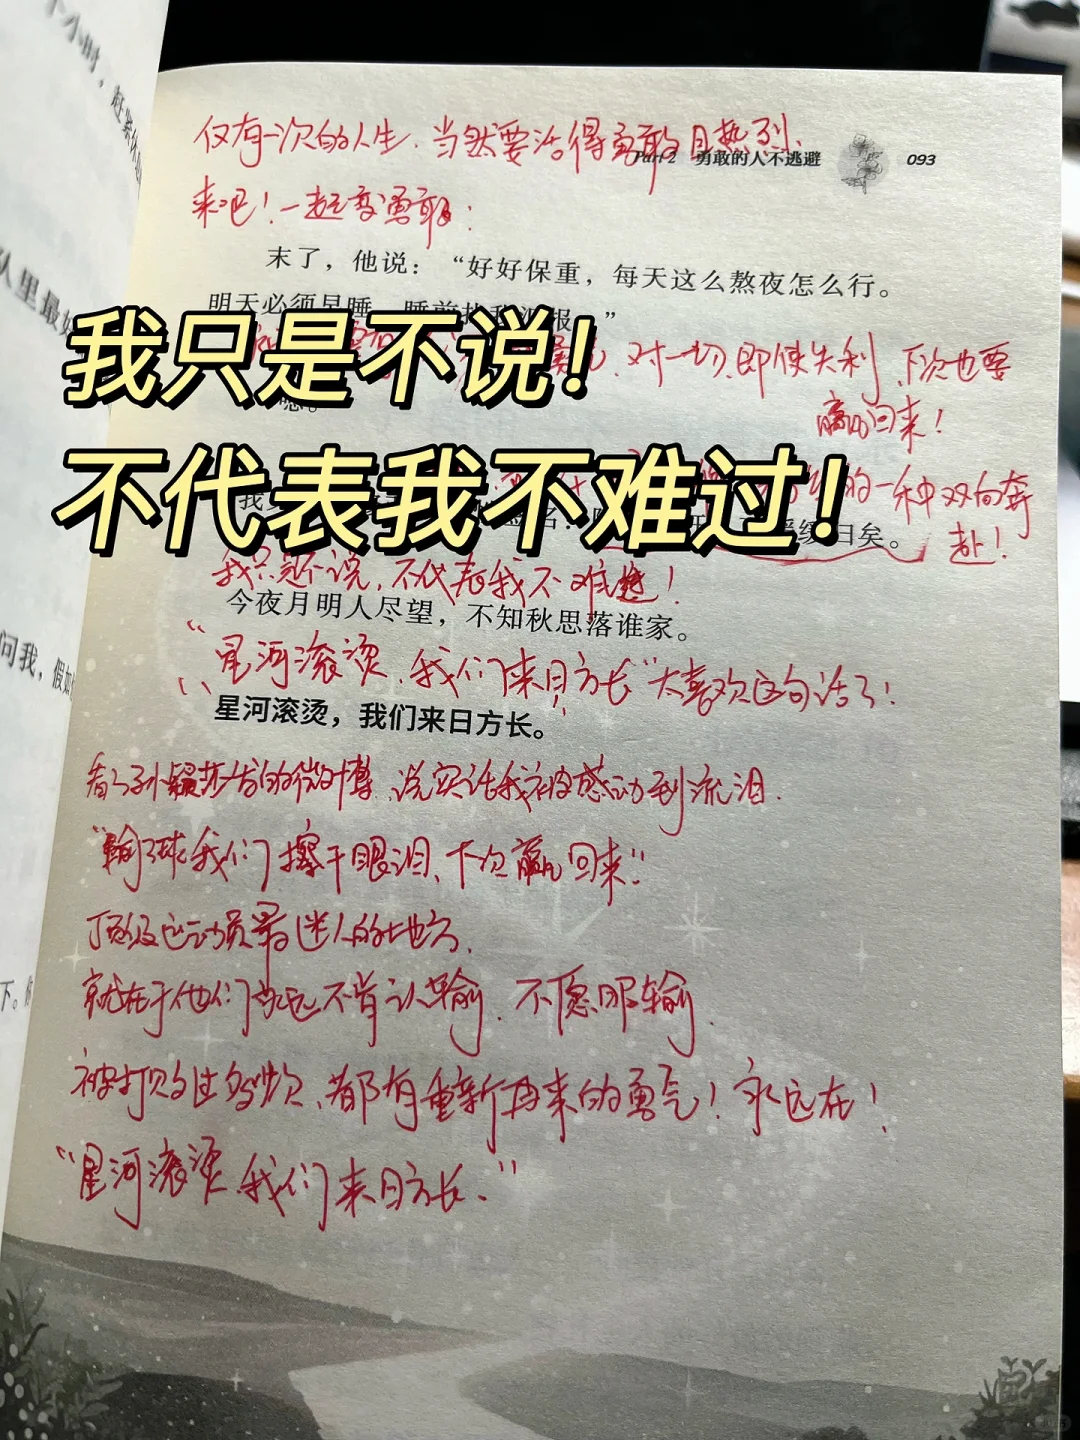 仅有一次的人生,当然要活得勇敢且热烈、
Part 2 勇敢的人不逃避 093
来吧!一起变勇敢:
末了,他说:“好好保重,每天这么熬夜怎么行。
明天必须早睡
报。”
我只是不说!
对一切、即使失利,下次也要
赢回来!
嗯。
不代表我不难过!
的一种双向奔
赴!
归矣。
我只是不说,不代表我不难过!
今夜月明人尽望,不知秋思落谁家。
“星河滚烫,我们来日方长”太喜欢这句话了!
星河滚烫,我们来日方长。
看了孙颖莎发的微博,说实话我被感动到流泪.
“输了球我们擦干眼泪、下次赢回来!”
顶级运动员最迷人的地方.
就在于他们永远不肯认输,不愿服输.
被打败过多少次,都有重新再来的勇气!永远在!
“星河滚烫,我们来日方长.”
小时,赶紧休
人里最好
问我,假如
下。你